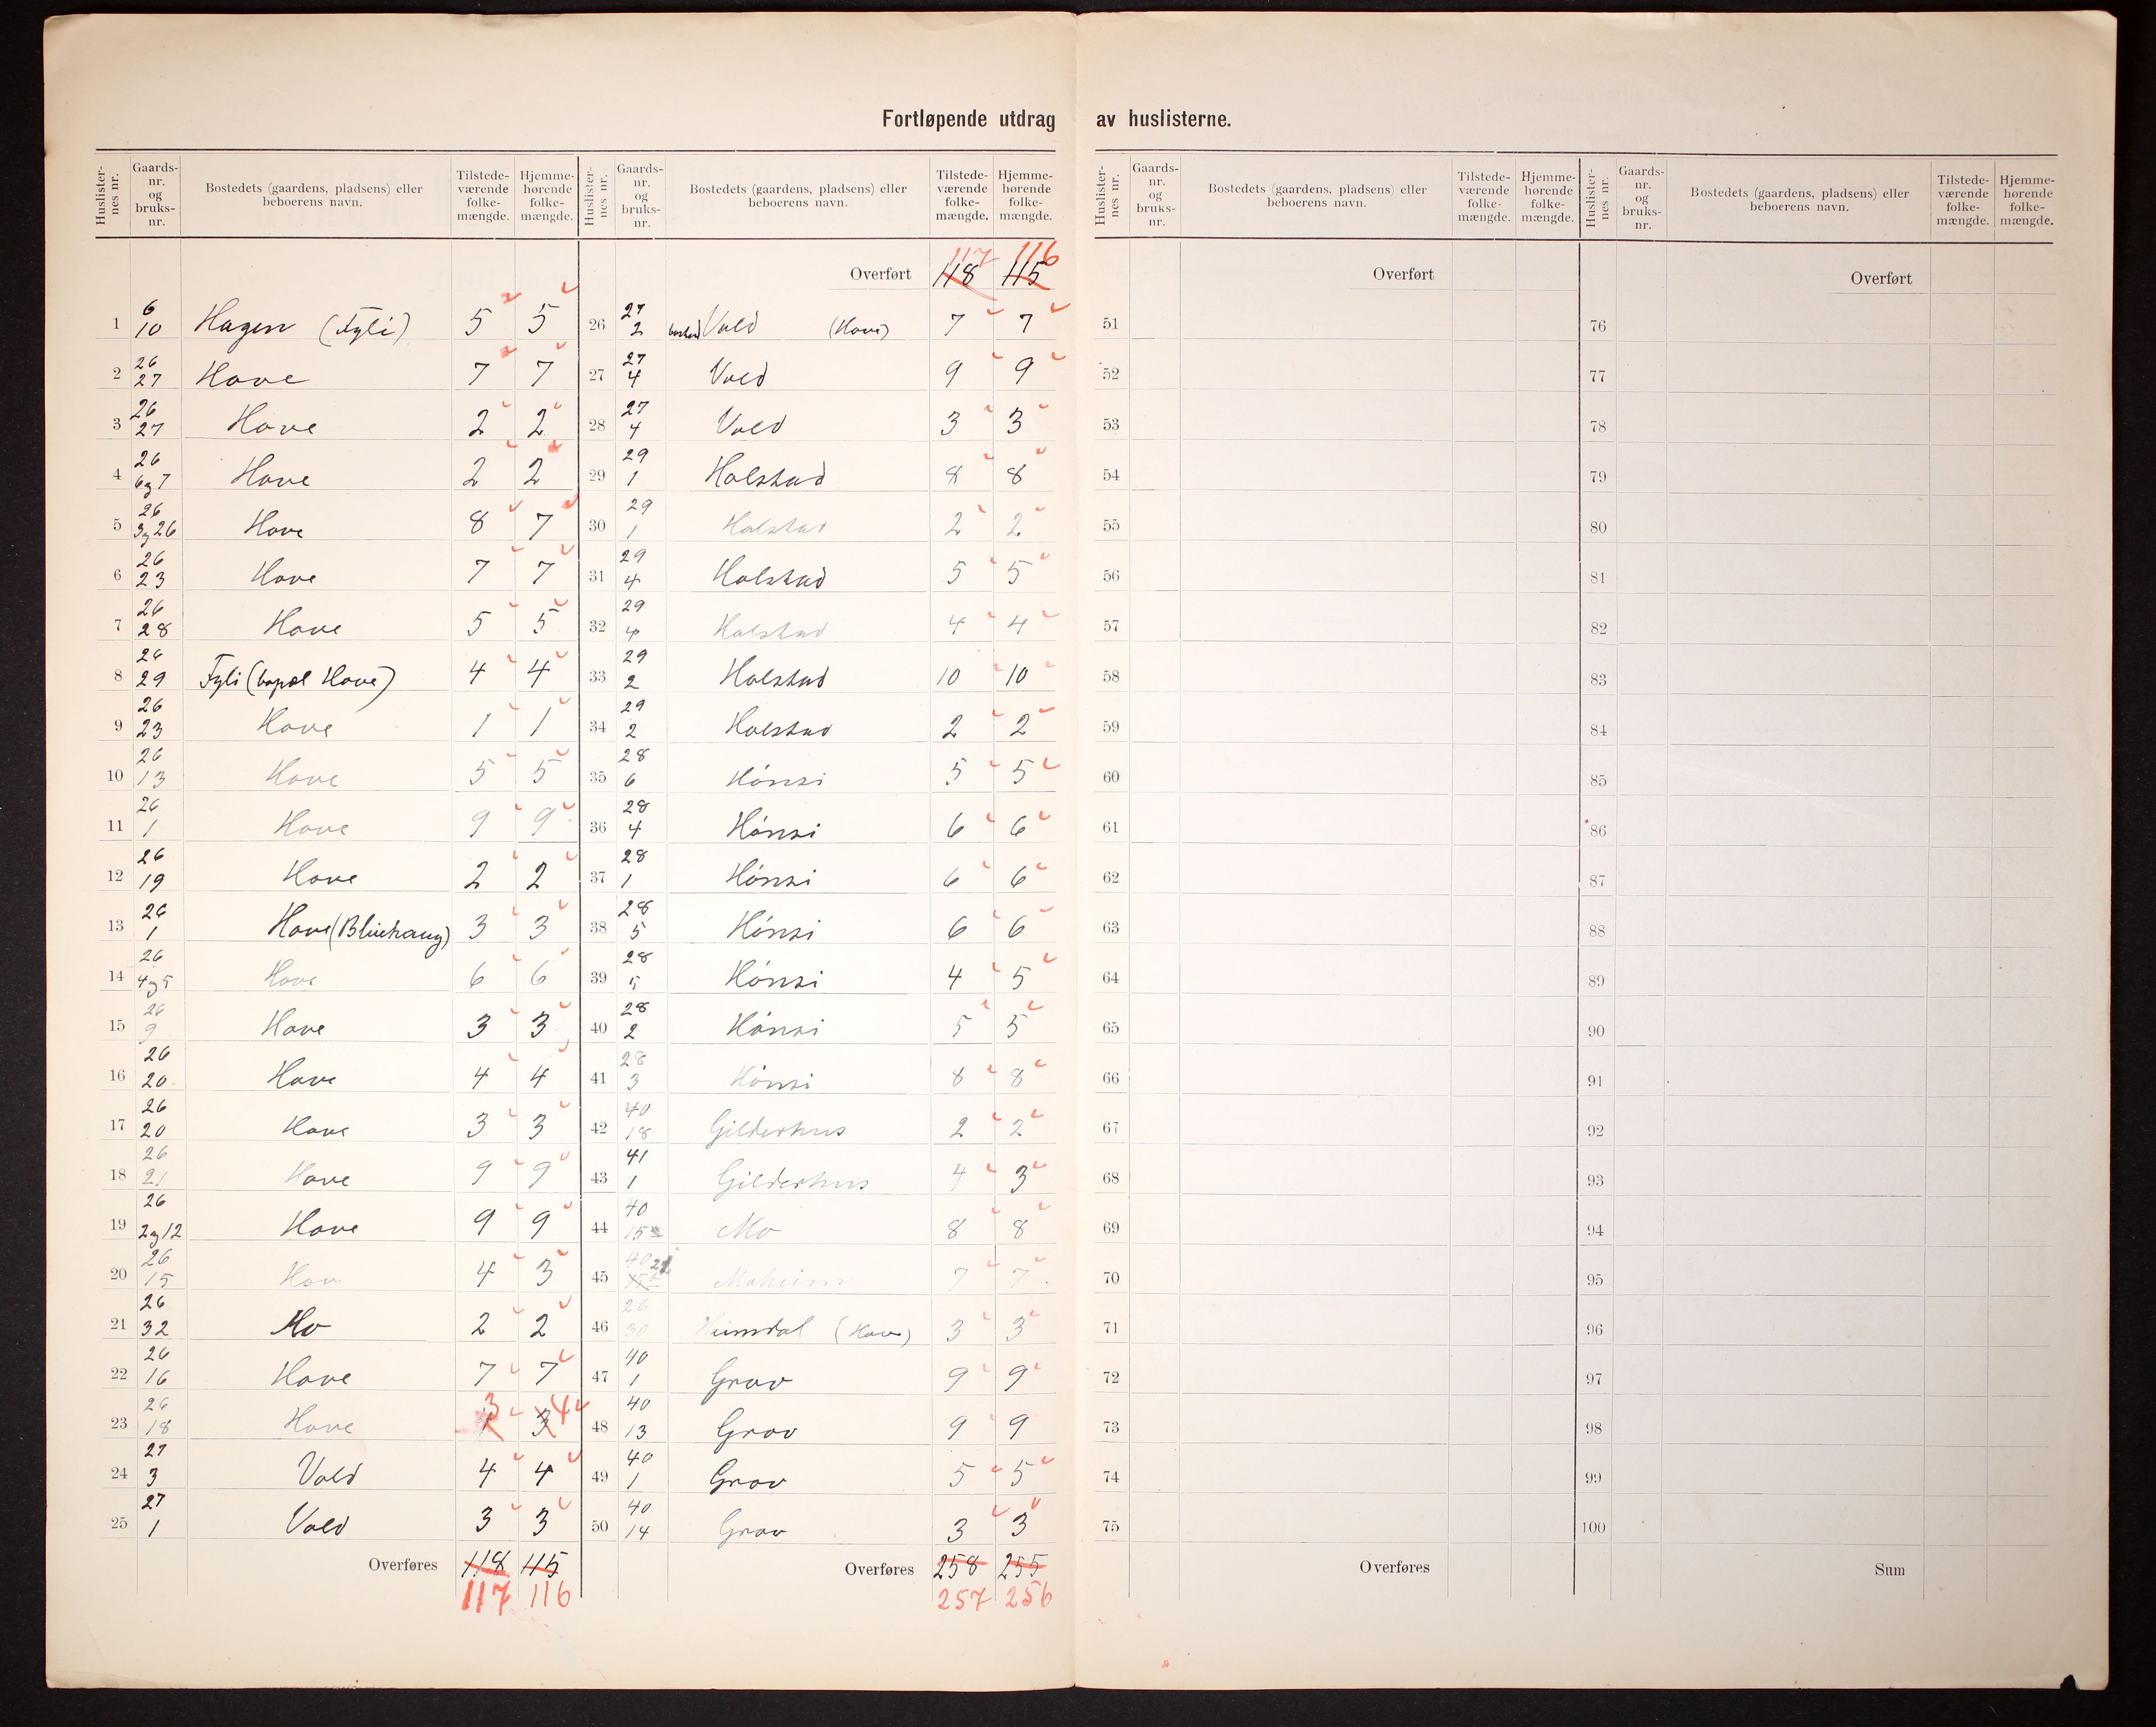 Fortløpende utdrag av huslisterne.
Huslisternes nr. Gaards-nr. og bruks-nr. Bostedets (gaardens, pladsens) eller beboerens navn. Tilstede-værende folke-mængde. Hjemme-hørende folke-mængde.
1 6 10 Hagen (Fyli) 5 5
2 26 27 Hove 7 7
3 26 27 Hove 2 2
4 26 6og7 Hove 2 2
5 26 3og26 Hove 8 7
6 26 23 Hove 7 7
7 26 28 Hove 5 5
8 26 29 Fyli (bopæl Hove) 4 4
9 26 23 Hove 1 1
10 26 13 Hove 5 5
11 26 1 Hove 9 9
12 26 19 Hove 2 2
13 26 1 Hove 3 3
14 26 4og5 Hove 6 6
15 26 9 Hove 3 3
16 26 20 Hove 4 4
17 26 20 Hove 3 3
18 26 21 Hove 9 9
19 26 2og12 Hove 9 9
20 26 15 Hov 4 3
21 26 32 Mo 2 2
22 26 16 Hove 7 7
23 26 18 Hove 3 3 4
24 27 3 Vold 4 4
25 27 1 Vold 3 3
Overføres 118 115
117 116
Huslisternes nr. Gaards-nr. og bruks-nr. Bostedets (gaardens, pladsens) eller beboerens navn. Tilstede-værende folke-mængde. Hjemme-hørende folke-mængde.
117 116
Overført 118 115
26 27 2 Vold (Hove) 7 7
27 27 4 Vold 9 9
28 27 4 Vold 3 3
29 29 1 Holstad 8 8
30 29 1 Holstad 2 2
31 29 4 Holstad 5 5
32 29 4 Holstad 4 4
33 29 2 Holstad 10 10
34 29 2 Holstad 2 2
35 28 6 Hónsi 5 5
36 28 4 Hónsi 6 6
37 28 1 Hónsi 6 6
38 28 5 Hónsi 6 6
39 28 5 Hónsi 4 5
40 28 2 Hónsi 5 5
41 28 3 Hónsi 8 8
42 40 18 Gilderhus 2 2
43 41 1 Gilderhus 4 3
44 40 15 Mo 8 8
45 40 21 Moheim 7 7
46 26 30 Heimdal (Hove) 3 3
47 40 1 Grov 9 9
48 40 13 Grov 9 9
49 40 1 Grov 5 5
50 40 14 Grov 3 3
Overføres 258 255
257 256
Huslisternes nr. Gaards-nr. og bruks-nr. Bostedets (gaardens, pladsens) eller beboerens navn. Tilstede-værende folke-mængde. Hjemme-hørende folke-mængde.
Overført
51
52
53
54
55
56
57
58
59
60
61
62
63
64
65
66
67
68
69
70
71
72
73
74
75
Overføres
Huslisternes nr. Gaards-nr. og bruks-nr. Bostedets (gaardens, pladsens) eller beboerens navn. Tilstede-værende folke-mængde. Hjemme-hørende folke-mængde.
Overført
76
77
78
79
80
81
82
83
84
85
86
87
88
89
90
91
92
93
94
95
96
97
98
99
100
Sum